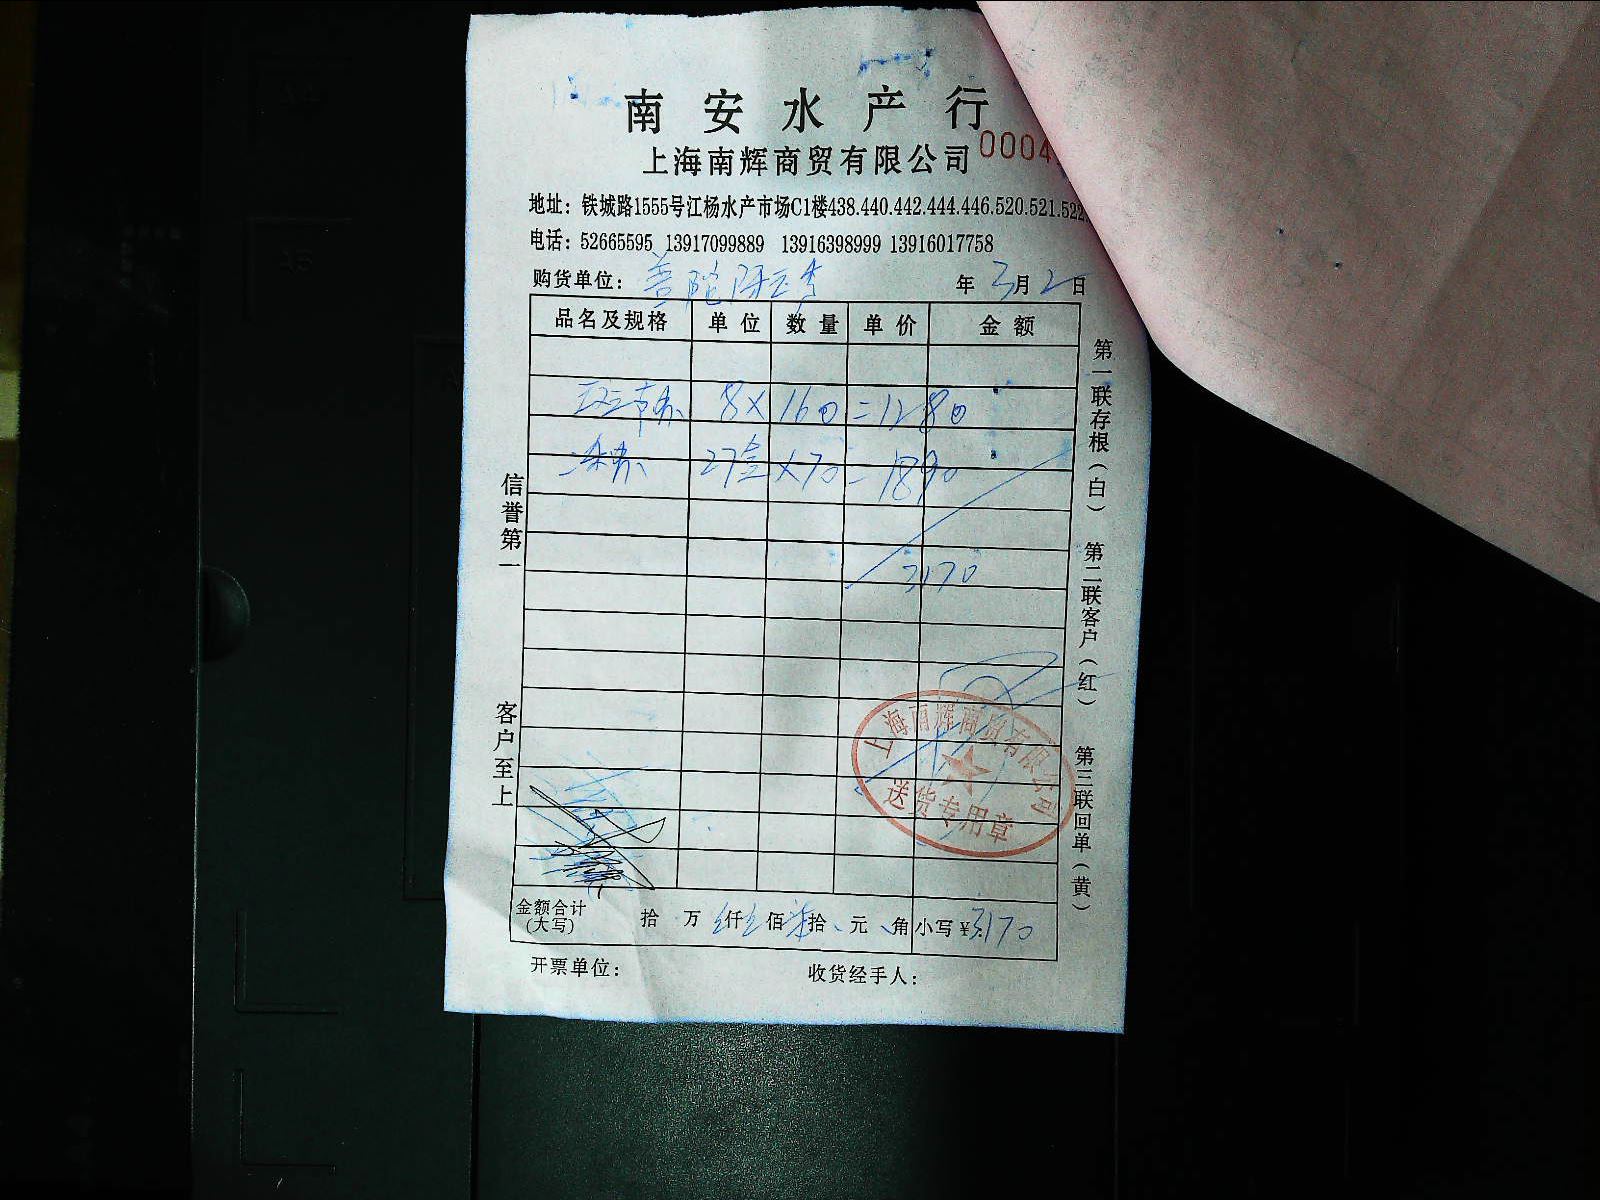 南安水产行
上海南辉商贸有限公司 0004
地址：铁城路1555号江杨水产市场C1楼438.440.442.444.446.520.521.522
电话：52665595 13917099889 13916398999 13916017758
购货单位：普陀 年 3月2日
品名及规格 单位 数量 单价 金额
8 × 160 = 1280
27盒 × 70 = 1890
3170
信誉第一
客户至上
第一联存根（白）
第二联客户（红）
第三联回单（黄）
上海南辉商贸有限公司
送货专用章
金额合计 拾 万 仟 佰 柒拾 元 角 小写¥:3170
（大写）
开票单位： 收货经手人：